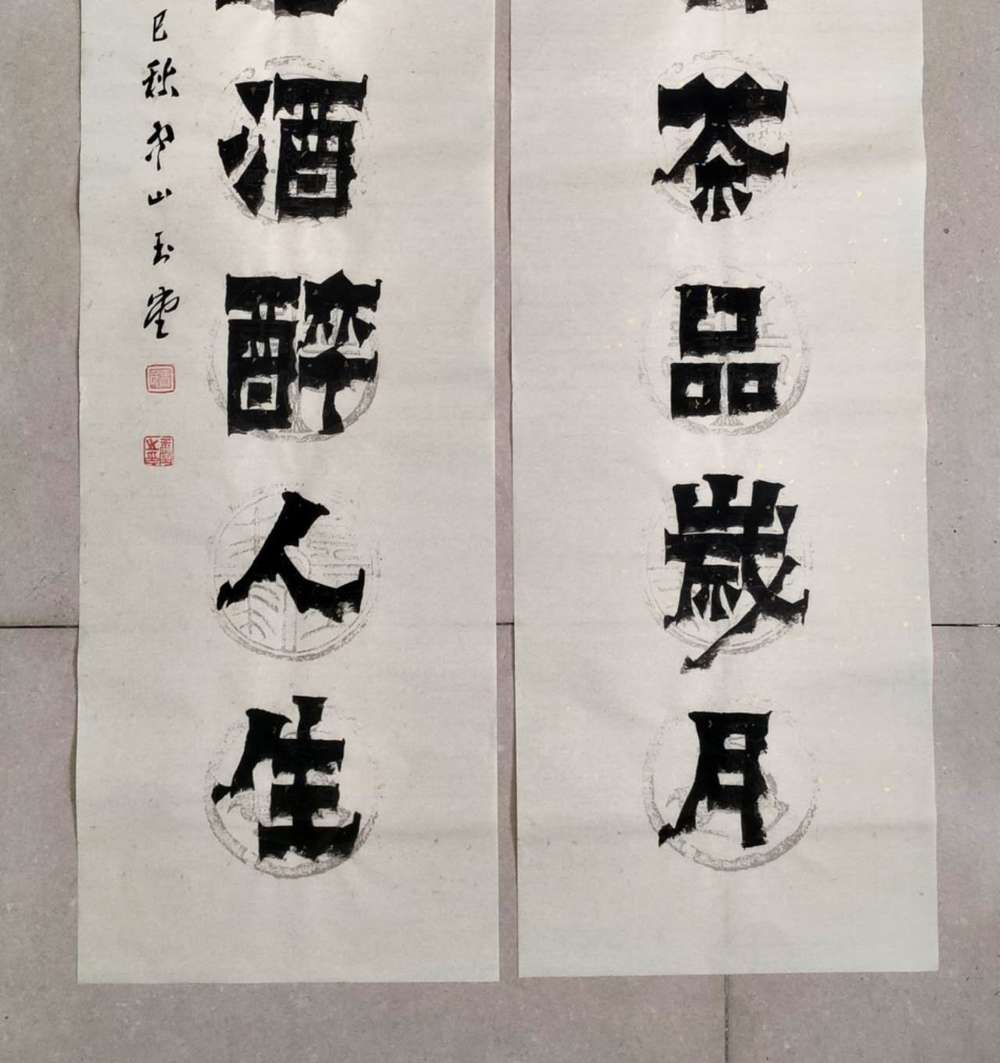 茶品歲月
酒醉人生
巳秋
山玉堂